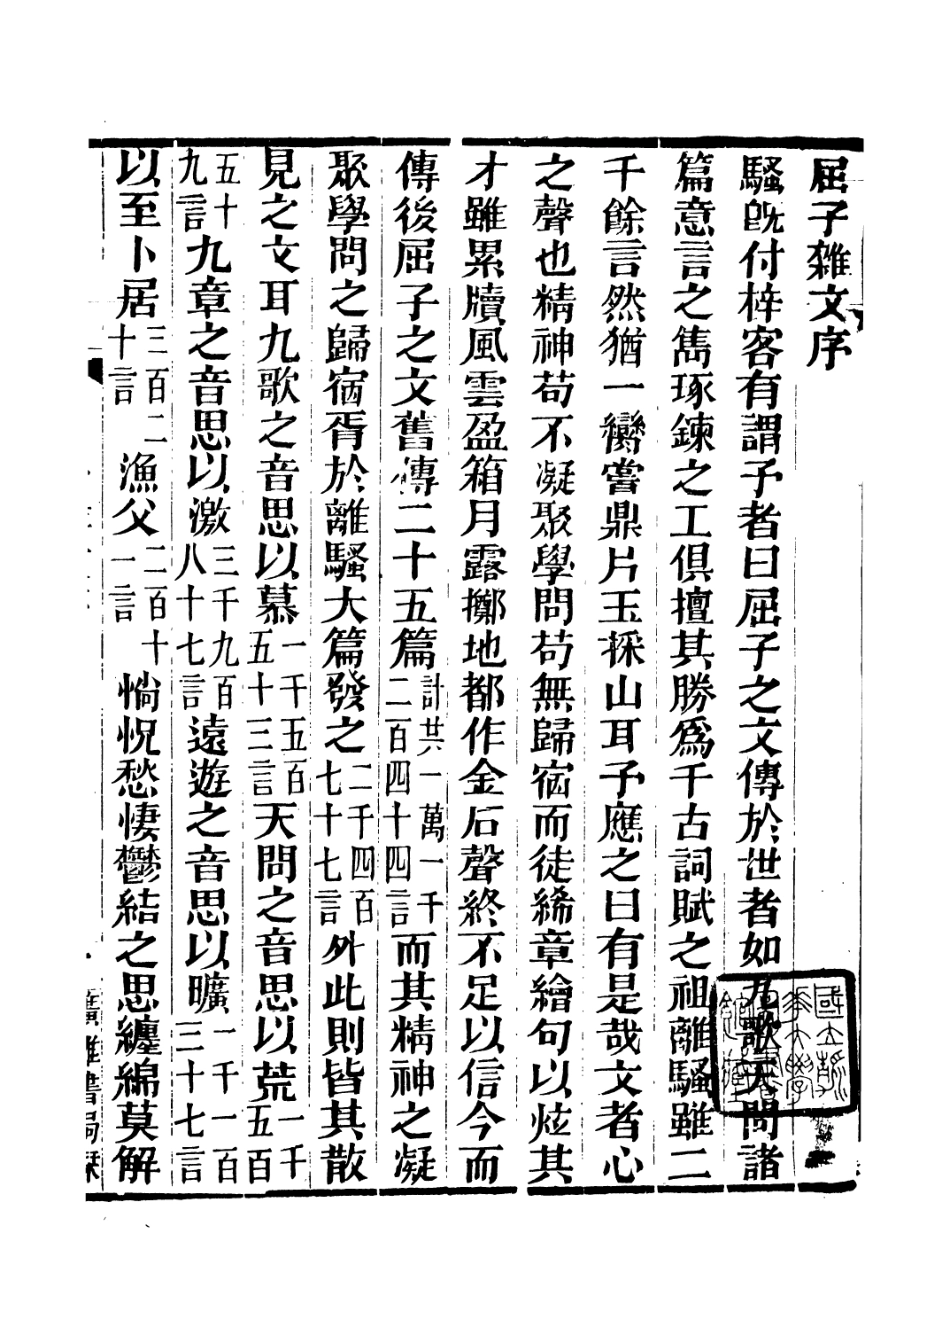 屈子雜文序
騷旣付梓客有謂予者曰屈子之文傳於世者如九歌天問諸
篇意言之雋琢鍊之工俱擅其勝爲千古詞賦之祖離騷雖二
千餘言然猶一臠嘗鼎片玉採山耳予應之曰有是哉文者心
之聲也精神苟不凝聚學問苟無歸宿而徒絺章繪句以炫其
才雖累牘風雲盈箱月露擲地都作金石聲終不足以信今而
傳後屈子之文舊傳二十五篇計共一萬一千二百四十四言而其精神之凝
聚學問之歸宿胥於離騷大篇發之二千四百七十七言外此則皆其散
見之文耳九歌之音思以慕一千五百五十三言天問之音思以荒一千五百
五十九言九章之音思以激三千九百八十七言遠遊之音思以曠一千一百三十七言
以至卜居三百二十言漁父二百十一言惝怳愁悽鬱結之思纏綿莫解
廣雅書局栞